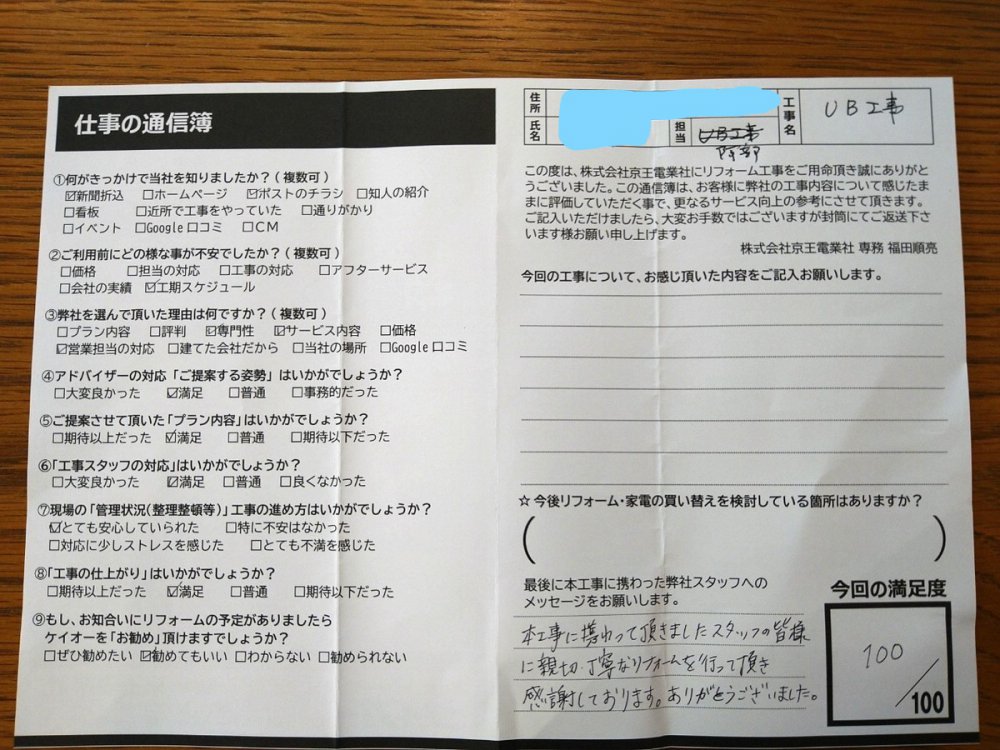 仕事の通信簿
①何がきっかけで当社を知りましたか？(複数可)
☑新聞折込 □ホームページ ☑ポストのチラシ □知人の紹介
□看板 □近所で工事をやっていた □通りがかり
□イベント □Google口コミ □CM
②ご利用前にどの様な事が不安でしたか？(複数可)
□価格 □担当の対応 □工事の対応 □アフターサービス
□会社の実績 ☑工期スケジュール
③弊社を選んで頂いた理由は何ですか？(複数可)
□プラン内容 □評判 ☑専門性 ☑サービス内容 □価格
☑営業担当の対応 □建てた会社だから □当社の場所 □Google口コミ
④アドバイザーの対応「ご提案する姿勢」はいかがでしょうか？
□大変良かった ☑満足 □普通 □事務的だった
⑤ご提案させて頂いた「プラン内容」はいかがでしょうか？
□期待以上だった ☑満足 □普通 □期待以下だった
⑥「工事スタッフの対応」はいかがでしょうか？
□大変良かった ☑満足 □普通 □良くなかった
⑦現場の「管理状況(整理整頓等)」工事の進め方はいかがでしょうか？
☑とても安心していられた □特に不安はなかった
□対応に少しストレスを感じた □とても不満を感じた
⑧「工事の仕上がり」はいかがでしょうか？
□期待以上だった ☑満足 □普通 □期待以下だった
⑨もし、お知合いにリフォームの予定がありましたら
ケイオーを「お勧め」頂けますでしょうか？
□ぜひ勧めたい ☑勧めてもいい □わからない □勧められない
住所
氏名
担当 UB工事
阿部
工事名 UB工事
この度は、株式会社京王電業社にリフォーム工事をご用命頂き誠にありがと
うございました。この通信簿は、お客様に弊社の工事内容について感じたま
まに評価していただく事で、更なるサービス向上の参考にさせて頂きます。
ご記入いただけましたら、大変お手数ではございますが封筒にてご返送下さ
います様お願い申し上げます。
株式会社京王電業社 専務 福田順亮
今回の工事について、お感じ頂いた内容をご記入お願いします。
☆今後リフォーム・家電の買い替えを検討している箇所はありますか？
( )
最後に本工事に携わった弊社スタッフへの
メッセージをお願いします。
本工事に携わって頂きましたスタッフの皆様
に親切・丁寧なリフォームを行って頂き
感謝しております。ありがとうございました。
今回の満足度
100
/100